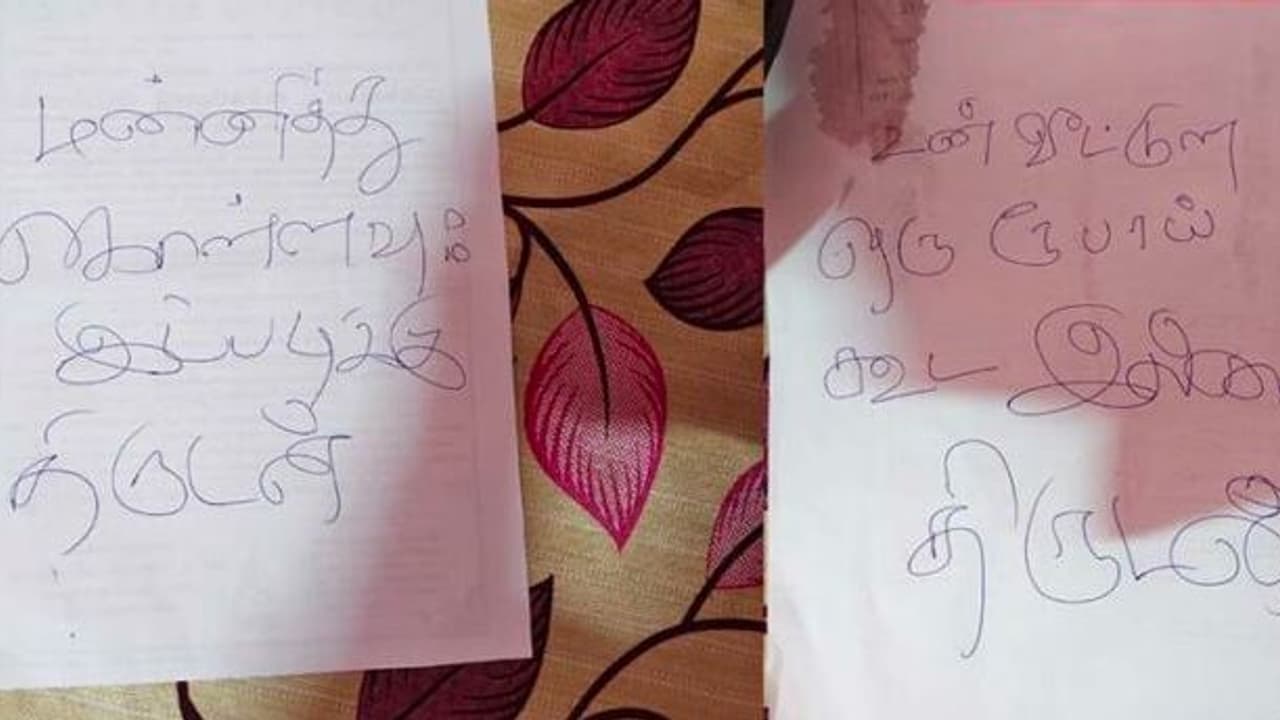 மன்னித்து
கொள்ளவும்
இப்படிக்கு
திருடன்
உன் வீட்டுல
ஒரு ரூபாய்
கூட இல்லை
திருட